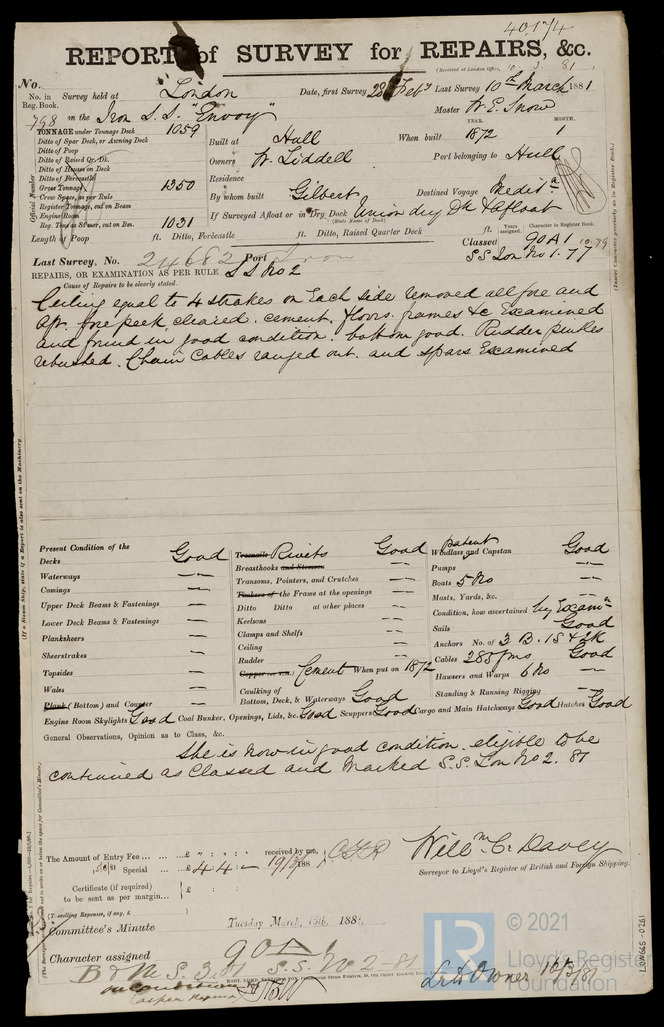 40174
REPORT of SURVEY for REPAIRS, &c.
(Received at London Office, 10. 3. 81)
No.
No. in Reg. Book. Survey held at London Date, first Survey 28 Feby Last Survey 10th March 1881
798 on the Iron S.S. "Envoy" Master W. E. Snow
TONNAGE under Tonnage Deck 1059
Ditto of Spar Deck, or Awning Deck
Ditto of Poop
Ditto of Raised Qr. Dk.
Ditto of Houses on Deck
Ditto of Forecastle
Gross Tonnage 1350
Crew Space, as per Rule
Register Tonnage, cut on Beam
Engine Room
Reg. Ton. as Steamer, cut on Bm. 1031
Official Number
Built at Hull When built YEAR. 1872 MONTH. 1
Owners W. Liddell Port belonging to Hull
Residence
By whom built Gilbert Destined Voyage Medita
If Surveyed Afloat or in Dry Dock Union dry Dk & afloat
(State Name of Dock)
Length of Poop ft. Ditto, Forecastle ft. Ditto, Raised Quarter Deck ft.
Years assigned. Character in Register Book.
Classed 90A1 10.79
S.S. Lon No 1. 77
Last Survey, No. 24682 Port Lon
REPAIRS, OR EXAMINATION AS PER RULE S S No 2
Cause of Repairs to be clearly stated.
Ceiling equal to 4 strakes on Each side removed all fore and
aft. fore peek cleared. cement, floors, frames &c Examined
and found in good condition. bottom good. Rudder pintles
rebushed. Chain Cables ranged out. and spars Examined
(If a Steam Ship, state if a Report is also sent on the Machinery.)
Present Condition of the
Decks Good
Waterways —
Comings —
Upper Deck Beams & Fastenings —
Lower Deck Beams & Fastenings —
Planksheers —
Sheerstrakes —
Topsides —
Wales —
Plank (Bottom) and Counter —
Treenails Rivets Good
Breasthooks and Stemson —
Transoms, Pointers, and Crutches —
Timbers of the Frame at the openings —
Ditto Ditto at other places —
Keelsons —
Clamps and Shelfs —
Ceiling —
Rudder —
Cement When put on 1872
Caulking of Bottom, Deck, & Waterways Good
patent
Windlass and Capstan Good
Pumps —
Boats 5 No —
Masts, Yards, &c. —
Condition, how ascertained by Examn
Sails Good
Anchors No. of 3 B. 1 S & 2K
Cables 285 fms Good
Hawsers and Warps 6 No —
Standing & Running Rigging —
Engine Room Skylights Good Coal Bunker, Openings, Lids, &c. Good Scuppers Good Cargo and Main Hatchways Good Hatches Good
General Observations, Opinion as to Class, &c.
She is now in good condition. eligible to be
continued as Classed and Marked S.S. Lon No 2. 81
The Amount of Entry Fee ... ... £ : : received by me,
Special ... £ 4 : 4 : – 19/3/1881
Certificate (if required) to be sent as per margin...
(Travelling Expenses, if any, £ )
Willm C. Davey
Surveyor to Lloyd's Register of British and Foreign Shipping.
Committee's Minute Tuesday March, 15th, 1881.
Character assigned 90A1
B & M S. 3. 81 S.S. No 2 – 81
Lr to Owner 16/3/81
© 2021
LR
Lloyd's Register
Foundation
LON665-0261